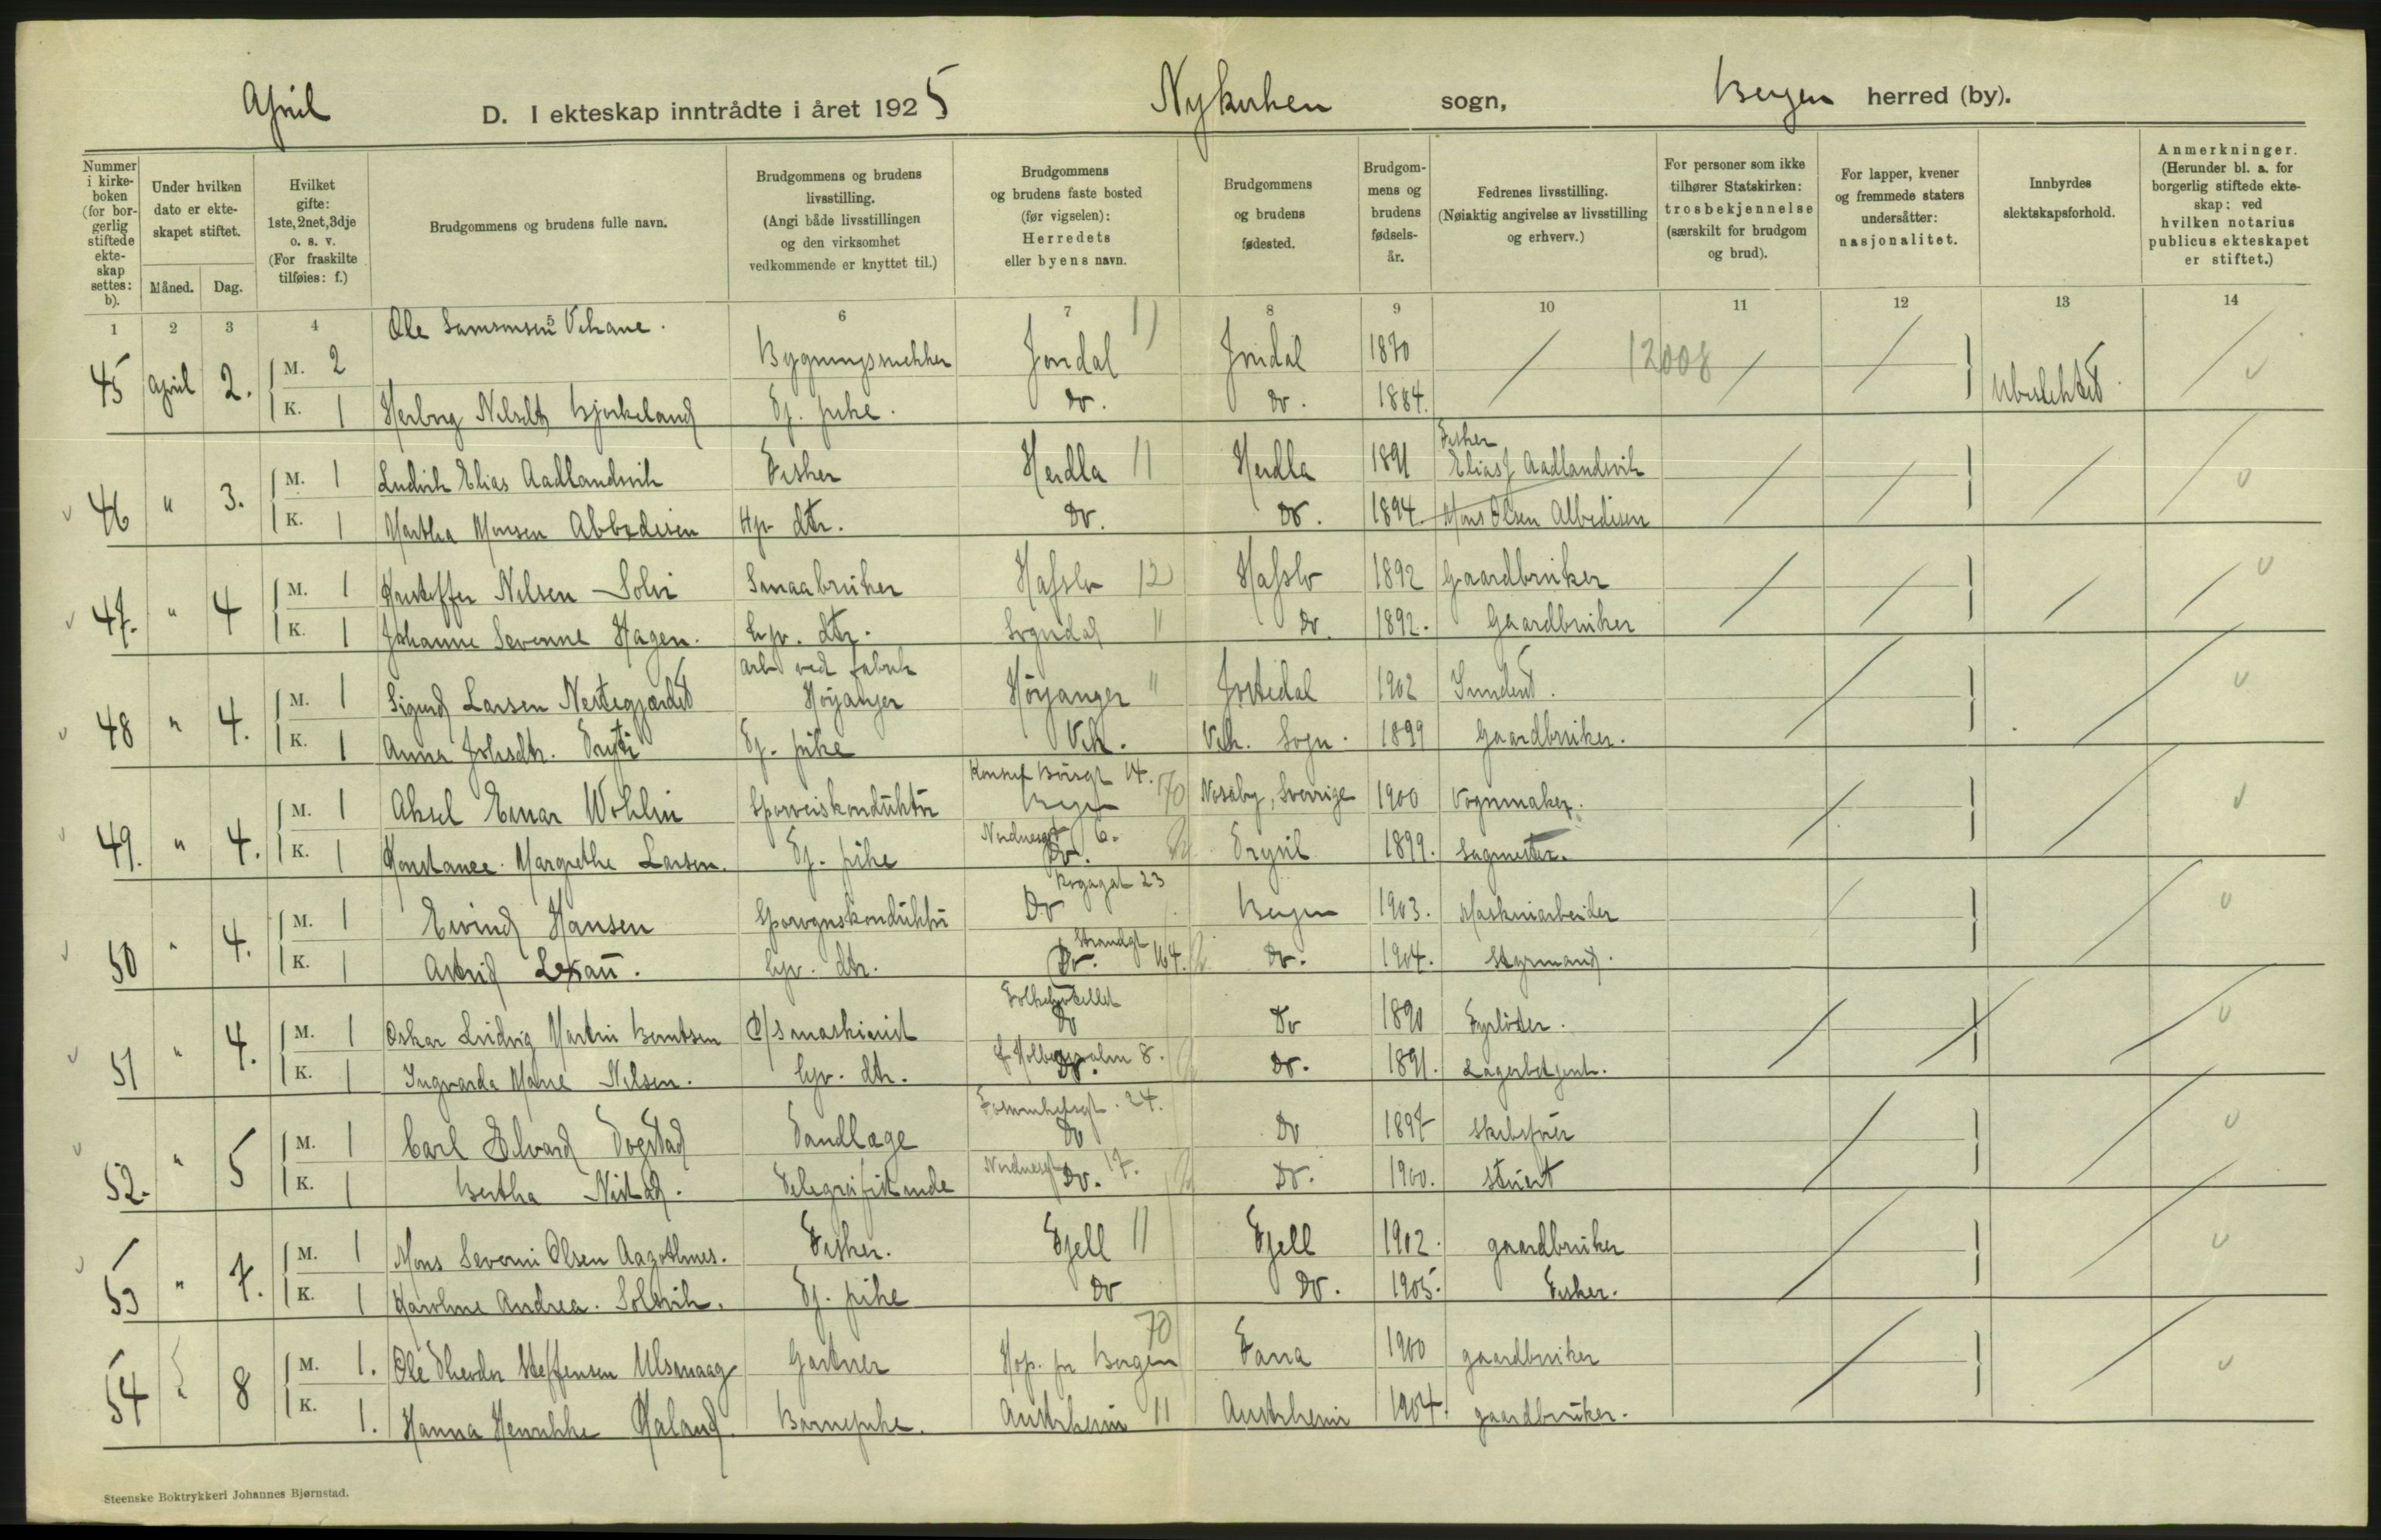 April D. I ekteskap inntrådte i året 1925 Nykirken sogn, Bergen herred (by).
Nummer i kirkeboken (for borgerlig stiftede ekteskap settes: b).
Under hvilken dato er ekteskapet stiftet.
Måned. Dag.
Hvilket gifte: 1ste, 2net, 3dje o. s. v. (For fraskilte tilføies: f.)
Brudgommens og brudens fulle navn.
Brudgommens og brudens livsstilling. (Angi både livsstillingen og den virksomhet vedkommende er knyttet til.)
Brudgommens og brudens faste bosted (før vigselen): Herredets eller byens navn.
Brudgommens og brudens fødested.
Brudgommens og brudens fødselsår.
Fedrenes livsstilling. (Nøiaktig angivelse av livsstilling og erhverv.)
For personer som ikke tilhører Statskirken: trosbekjennelse (særskilt for brudgom og brud).
For lapper, kvener og fremmede staters undersåtter: nasjonalitet.
Innbyrdes slektskapsforhold.
Anmerkninger. (Herunder bl. a. for borgerlig stiftede ekteskap: ved hvilken notarius publicus ekteskapet er stiftet.)
1 2 3 4 5 6 7 8 9 10 11 12 13 14
45 April 2. M. 2 Ole Samsonsen Vikane. Bygningssnekker Jondal 11 Jondal 1870 12008 Ubeslektet
K. 1 Herborg Nilsdtr Bjørkeland Ej. pike. Do. Do. 1884.
Fisker
46 " 3. M. 1 Ludvik Elias Aadlandsvik Fisker Herdla 11 Herdla 1891 Elias J Aadlandsvik
K. 1 Martha Monsen Abbedisen Hjv dtr. Do. Do. 1894 Mons Olsen Abbedisen
47. " 4 M. 1 Kristoffer Nilsen Solvi Smaabruker Hafslo 12 Hafslo 1892 Gaardbruker
K. 1 Johanne Severine Hagen. Hjv. dtr. Sogndal 11 Do. 1892. Gaardbruker
arb ved fabrik
48 " 4. M. 1 Sigurd Larsen Nestegjærdet Höyanger Höyanger " Jostedal 1902
K. 1 Anna Johsdtr. Ej. pike Vik. Vik. Sogn. 1899 Gaardbruker.
14.
49. " 4. M. 1 Aksel Einar Wohlin Sporveiskonduktör Bergen 70 Nosaby, Sverrige 1900 Vognmaker.
Nordnesgt 6.
K. 1 Konstance Margrethe Larsen. Ej. pike Do. Trysil 1899. Sagmester.
23
50 " 4. M. 1 Eivind Hansen Sporvognskonduktör Do Bergen 1903. Maskinarbeider
Strandgt 164.
K. 1 Astrid Lexau. hjv. dtr. Do. Do. 1904. Styrmand.
Folkehotellet
51 " 4. M. 1 Oskar Ludvig Martin Berntsen D/s maskinist Do Do 1890 Fyrböter.
Holbergsalm 8.
K. 1 Ingvarda Marie Nilsen. hjv. dtr. Do. Do. 1891. Lagerbetjent.
24.
52. " 5 M. 1 Carl Edvard Tandlæge Do Do 1897 Skibsförer
Nordnesgt 17.
K. 1 Bertha Nistad. Telegrafistinde Do. Do. 1900. Stuert
53 " 7. M. 1 Mons Severin Olsen Aagothnes. Fisker. Fjell 11 Fjell 1902. gaardbruker
K. 1 Karoline Andrea Solsvik. Ej. pike Do Do. 1905. Fisker.
70
54 " 8 M. 1. Ole Theodor Steffensen Ulsmaag Gartner Hop. pr Bergen Fana 1900 gaardbruker
K. 1. Hanna Henrikke Haland. Barnepike. Austrheim 11 Austrheim 1904. gaardbruker.
Steenske Boktrykkeri Johannes Bjørnstad.